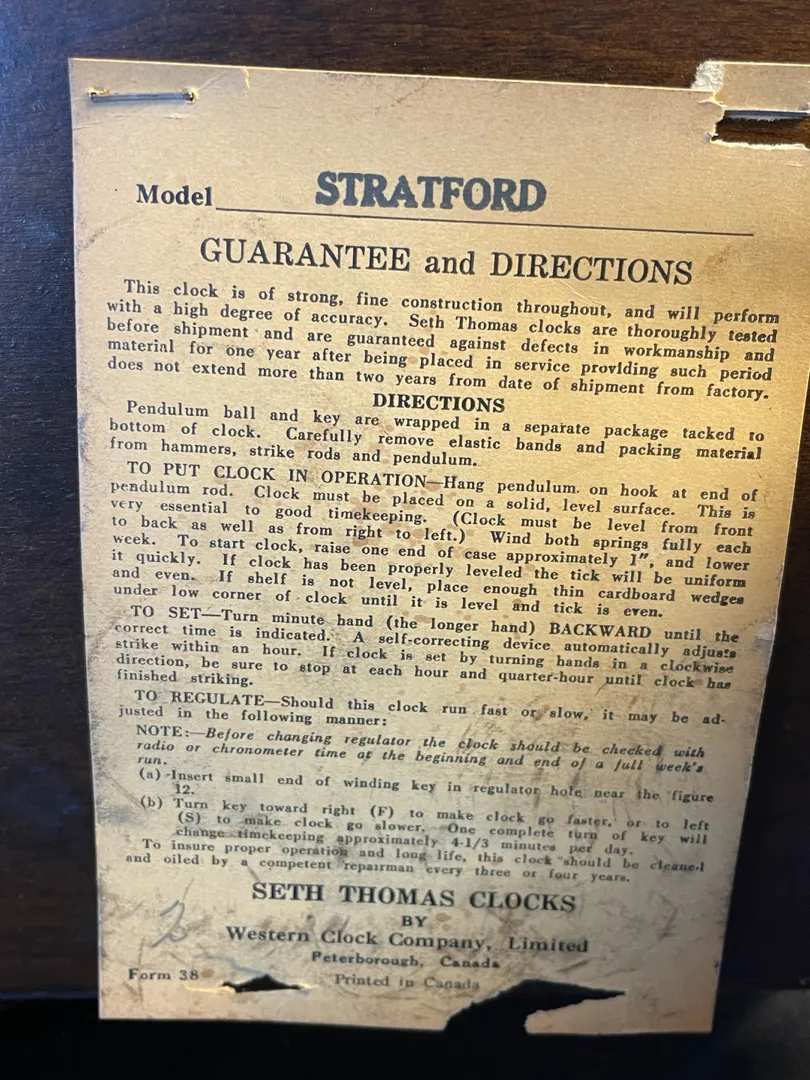 Model STRATFORD
GUARANTEE and DIRECTIONS
This clock is of strong, fine construction throughout, and will perform
with a high degree of accuracy. Seth Thomas clocks are thoroughly tested
before shipment and are guaranteed against defects in workmanship and
material for one year after being placed in service providing such period
does not extend more than two years from date of shipment from factory.
DIRECTIONS
Pendulum ball and key are wrapped in a separate package tacked to
bottom of clock. Carefully remove elastic bands and packing material
from hammers, strike rods and pendulum.
TO PUT CLOCK IN OPERATION—Hang pendulum on hook at end of
pendulum rod. Clock must be placed on a solid, level surface. This is
very essential to good timekeeping. (Clock must be level from front
to back as well as from right to left.) Wind both springs fully each
week. To start clock, raise one end of case approximately 1", and lower
it quickly. If clock has been properly leveled the tick will be uniform
and even. If shelf is not level, place enough thin cardboard wedges
under low corner of clock until it is level and tick is even.
TO SET—Turn minute hand (the longer hand) BACKWARD until the
correct time is indicated. A self-correcting device automatically adjusts
strike within an hour. If clock is set by turning hands in a clockwise
direction, be sure to stop at each hour and quarter-hour until clock has
finished striking.
TO REGULATE—Should this clock run fast or slow, it may be ad-
justed in the following manner:
NOTE:—Before changing regulator the clock should be checked with
radio or chronometer time at the beginning and end of a full week's
run.
(a) Insert small end of winding key in regulator hole near the figure
12.
(b) Turn key toward right (F) to make clock go faster, or to left
(S) to make clock go slower. One complete turn of key will
change timekeeping approximately 4-1/3 minutes per day.
To insure proper operation and long life, this clock should be cleaned
and oiled by a competent repairman every three or four years.
SETH THOMAS CLOCKS
BY
Western Clock Company, Limited
Peterborough, Canada
Form 38 Printed in Canada